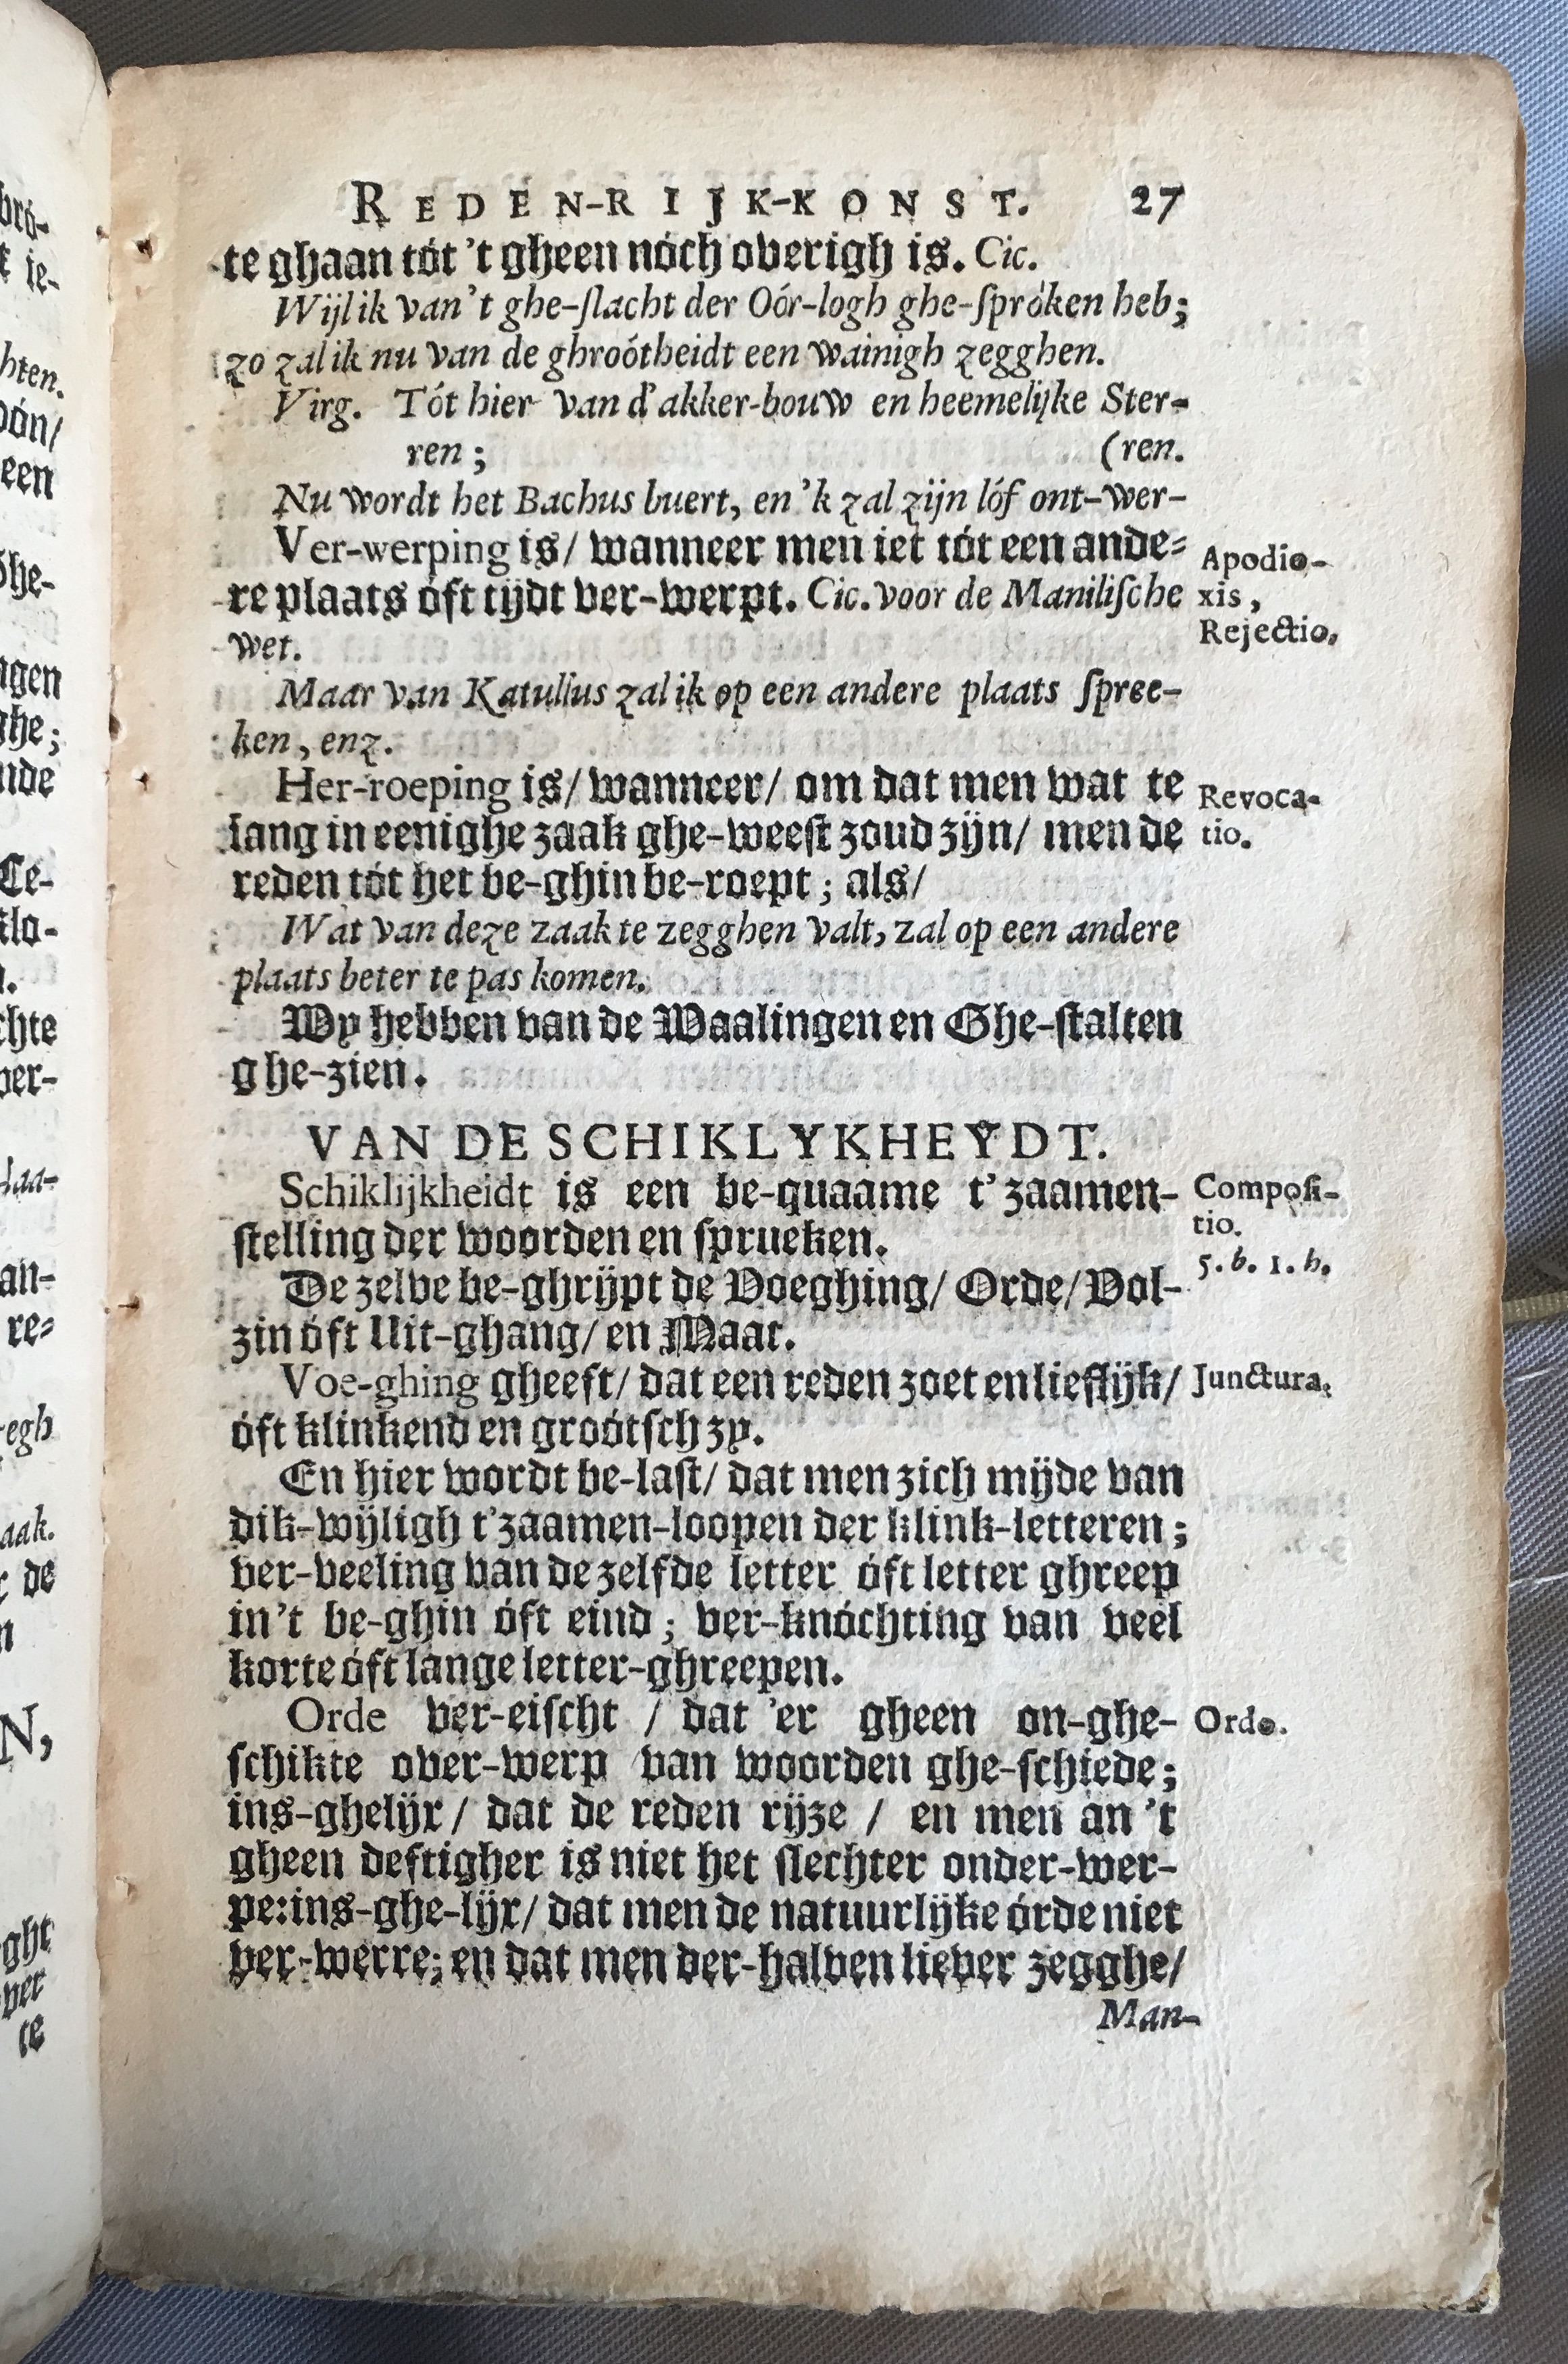 REDEN-RIJK-KONST. 27
te ghaan tót 't gheen nóch overigh is. Cic.
Wijl ik van 't ghe-slacht der Oór-logh ghe-spróken heb;
zo zal ik nu van de ghroótheidt een wainigh zegghen.
Virg. Tót hier van d'akker-bouw en heemelijke Ster-
ren; (ren.
Nu wordt het Bachus buert, en 'k zal zijn lóf ont-wer-
Ver-werping is/ wanneer men iet tót een ande-
re plaats óft tijdt ver-werpt. Cic. voor de Manilische
wet.
Apodio-
xis,
Rejectio.
Maar van Katullus zal ik op een andere plaats spree-
ken, enz.
Her-roeping is/ wanneer/ om dat men wat te
lang in eenighe zaak ghe-weest zoud zijn/ men de
reden tót het be-ghin be-roept; als/
Revoca-
tio.
Wat van deze zaak te zegghen valt, zal op een andere
plaats beter te pas komen.
Wy hebben van de Waalingen en Ghe-stalten
ghe-zien.
VAN DE SCHIKLYKHEYDT.
Schiklijkheidt is een be-quaame t'zaamen-
stelling der woorden en sprueken.
Composi-
tio.
5. b. 1. h.
De zelve be-ghrijpt de Voeghing/ Orde/ Vol-
zin óft Uit-ghang/ en Maat.
Voe-ghing gheeft/ dat een reden zoet en lieflijk/
óft klinkend en groótsch zy.
Junctura.
En hier wordt be-last/ dat men zich mijde van
dik-wijligh t'zaamen-loopen der klink-letteren;
ver-veeling van de zelfde letter óft letter ghreep
in 't be-ghin óft eind; ver-knóchting van veel
korte óft lange letter-ghreepen.
Orde ver-eischt / dat 'er gheen on-ghe-
schikte over-werp van woorden ghe-schiede;
ins-ghelijx / dat de reden rijze / en men an 't
gheen deftigher is niet het slechter onder-wer-
pe: ins-ghe-lijx/ dat men de natuurlijke órde niet
ver-werre; en dat men der-halven liever zegghe/
Ordo.
Man-